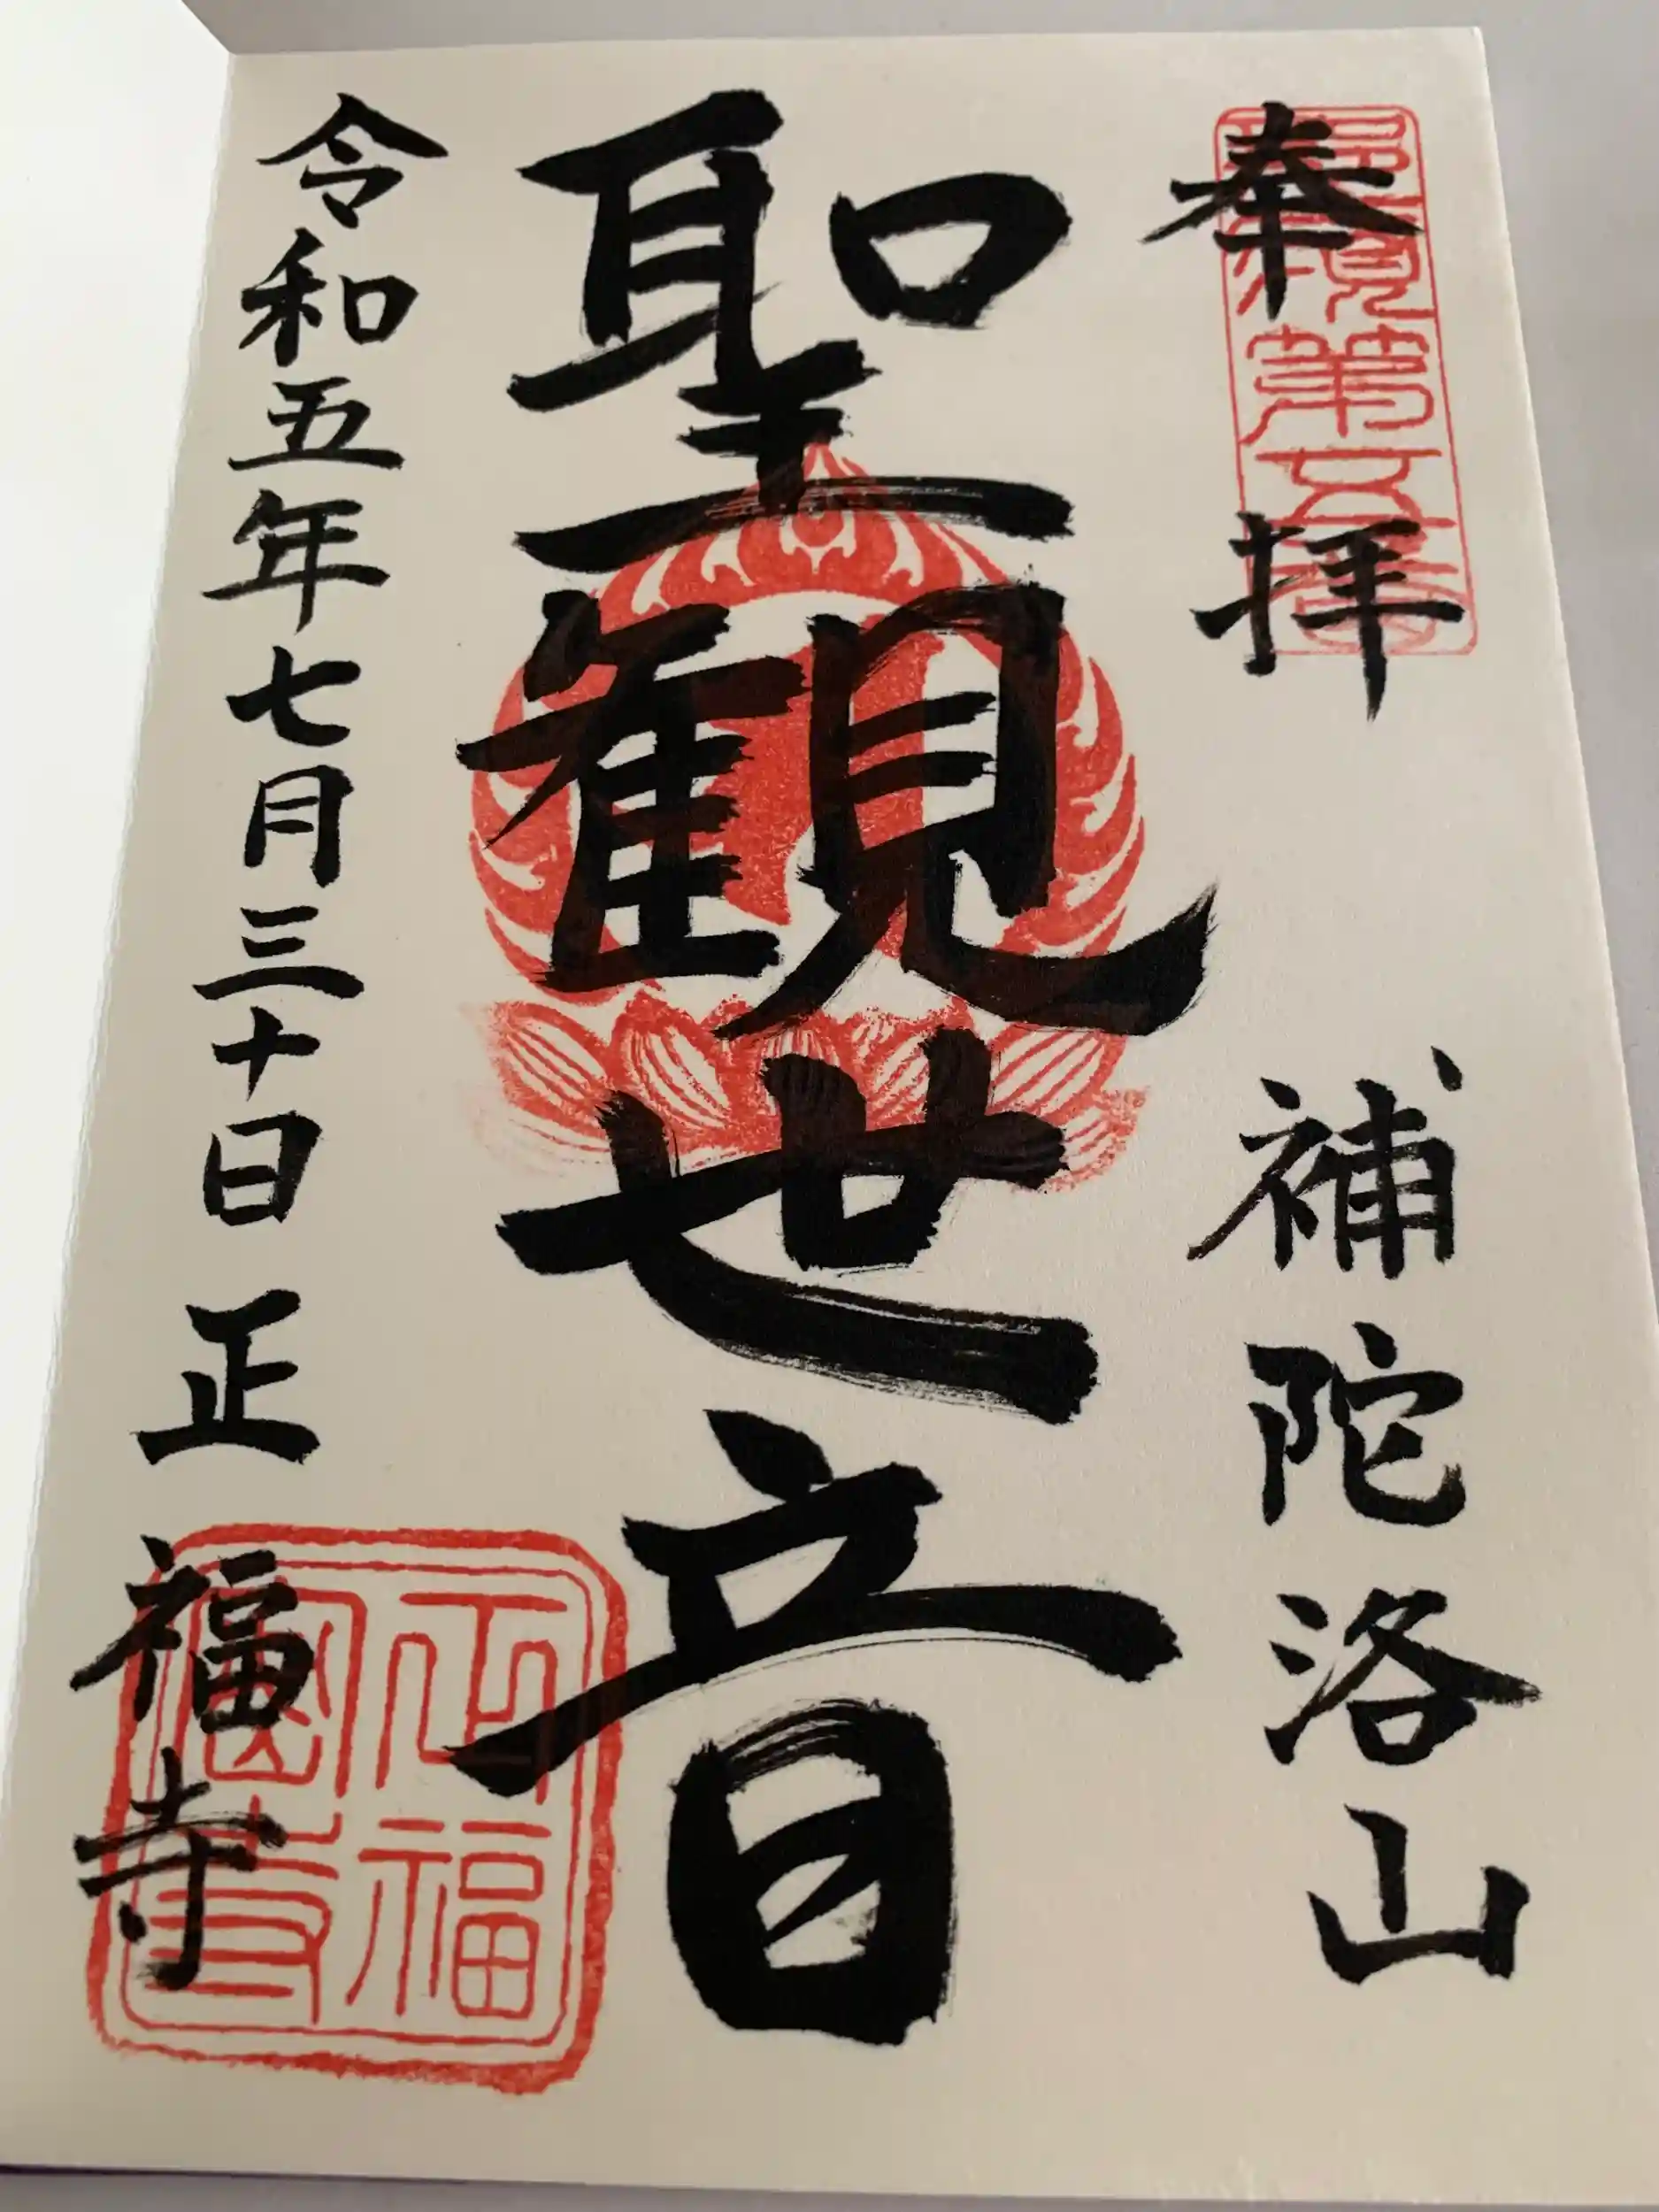 奉拝 補陀洛山
聖観世音
令和五年七月三十日 正福寺
正福
寺